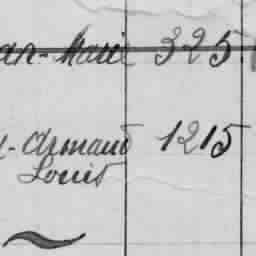 an-Marie 325
-Armand 1215
Louis